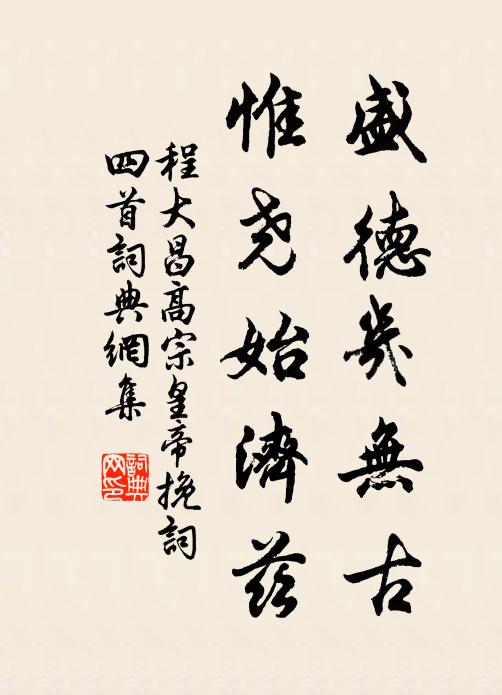 盛德幾無古
惟尧始濟茲
程大昌高宗皇帝挽詞
四首詞典網集
詞典
网印